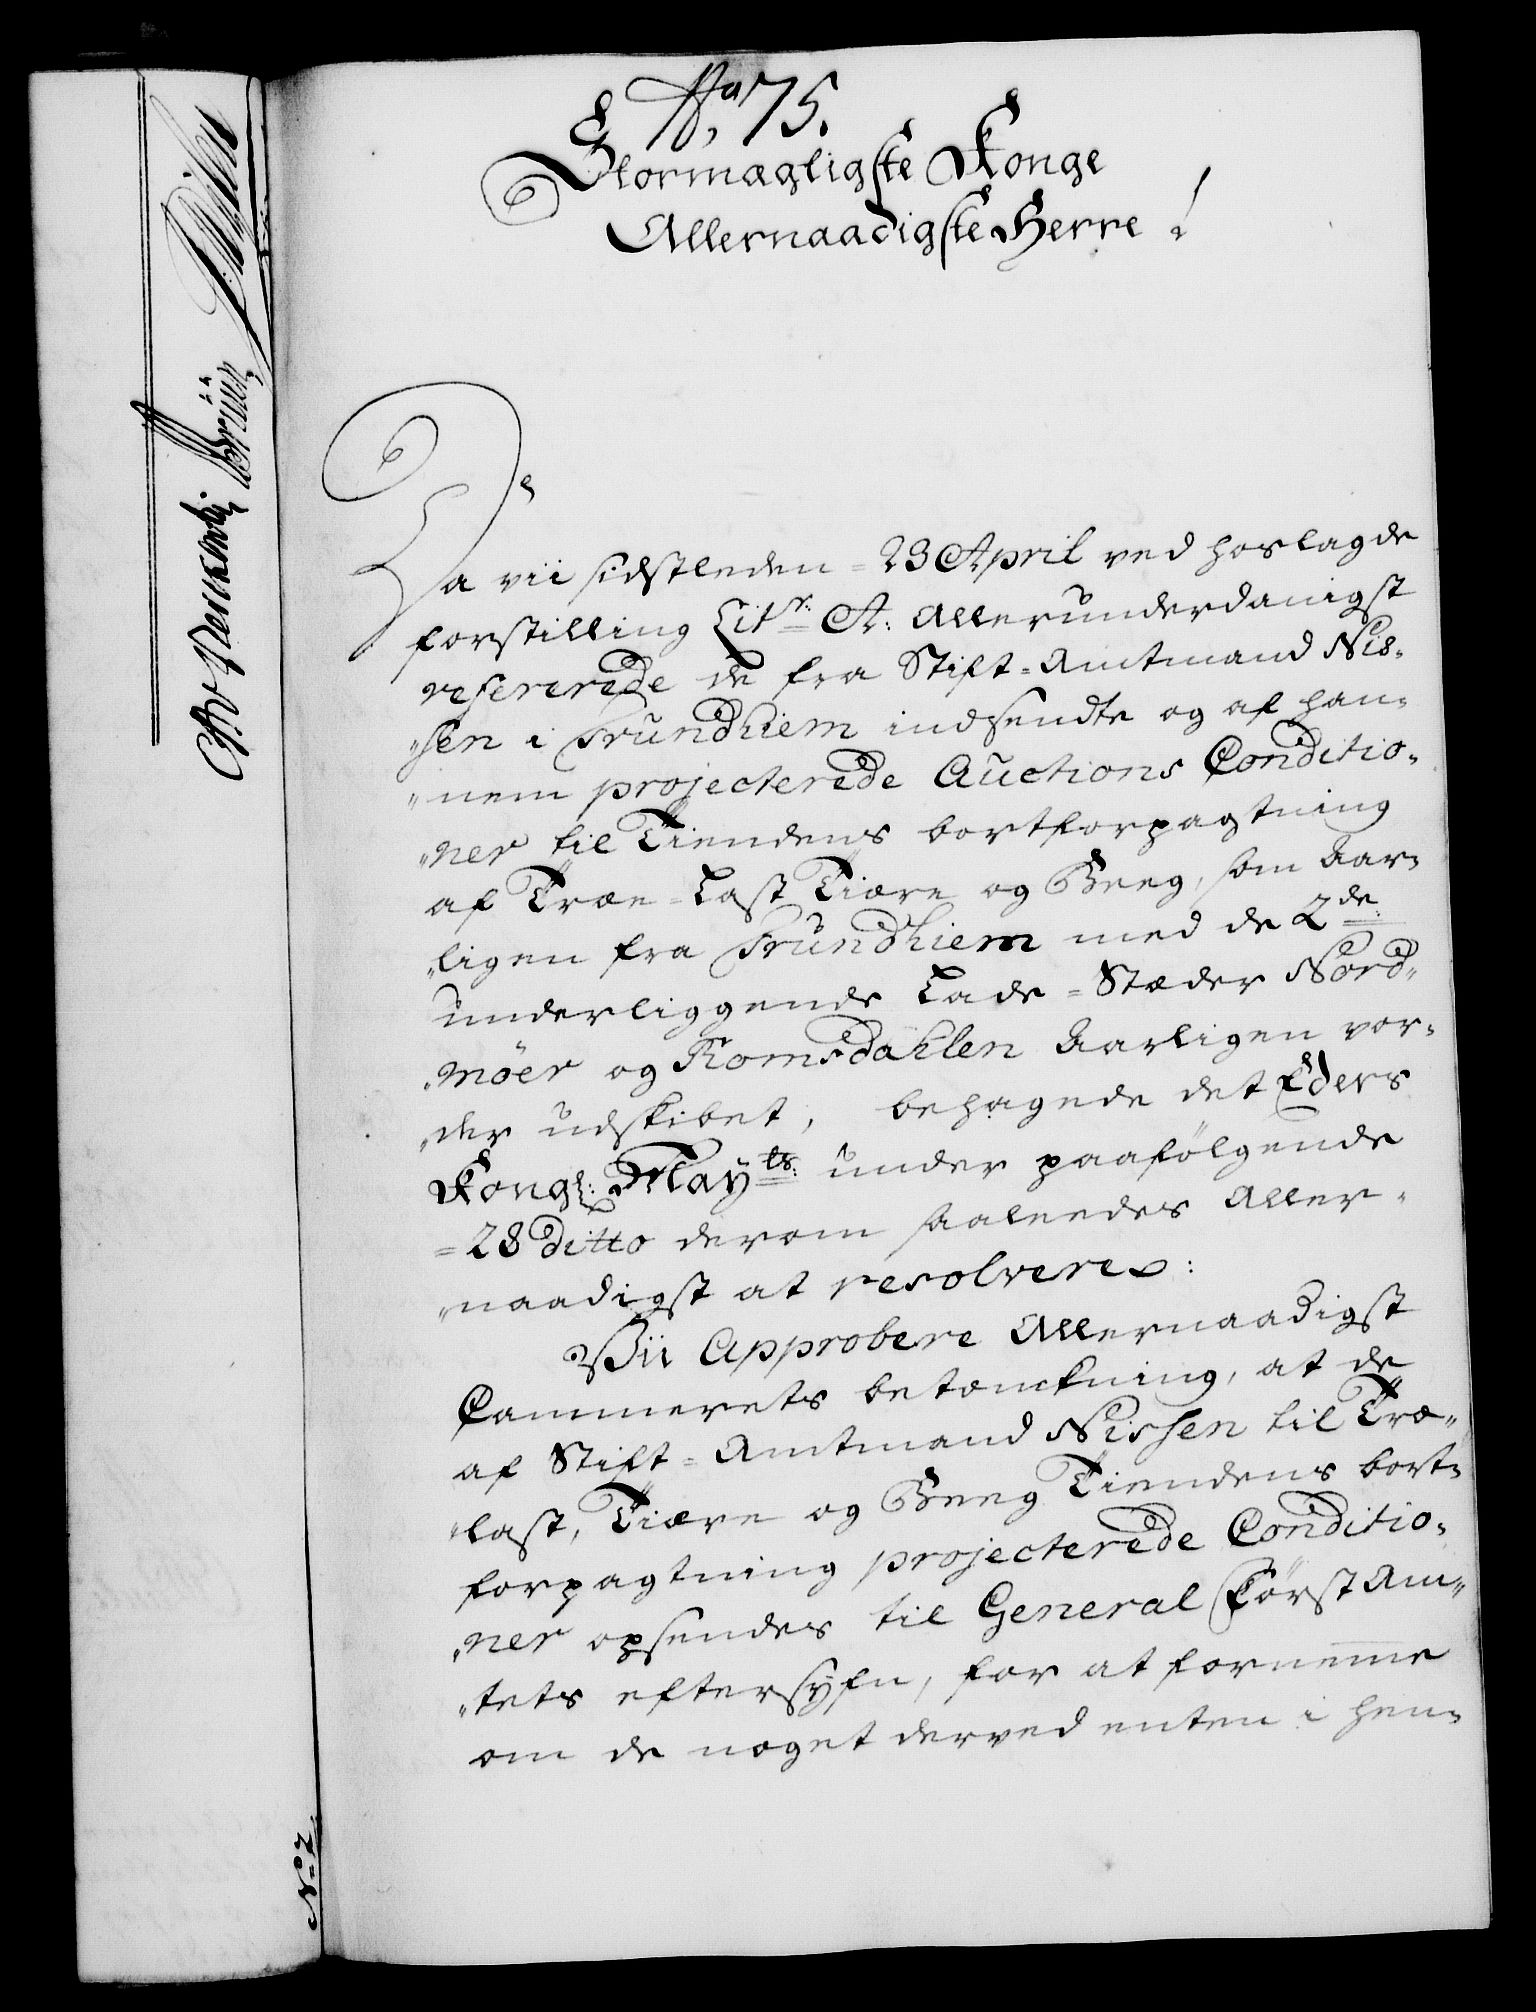 No 75.
Stormægtigste Konge
Allernaadigste Herre!
Da vii sidstleden = 23 April ved hoslagde
forstilling Litr: A: allerunderdanigst
refererede de fra Stift=Amtmand Nis-
"sen i Trundhiem indsendte og af han-
"nem projecterede Auctions Conditio-
"ner til Tiendens bortforpagtning
af Træe=Last Tiære og Beeg, som Aar-
"ligen fra Trundhiem med de 2de:
underliggende Lade=Stæder Nord-
"möer og Romsdahlen Aarligen vor-
"der udskibet, behagede det Eders
Kongl: Mayts: under paafölgende
=28 ditto derom saaleedes Aller-
"naadigst at resolvere:
Vii Approbere Allernaadigst
Cammerets betænckning, at de
af Stift=Amtmand Nissen til Træ-
"last, Tiære og Beeg Tiendens bort-
forpagtning projecterede Conditio-
"ner opsendes til General Forst Am-
"tets eftersyfn, for at fornemme
om de noget derved enten i hen-
No 2